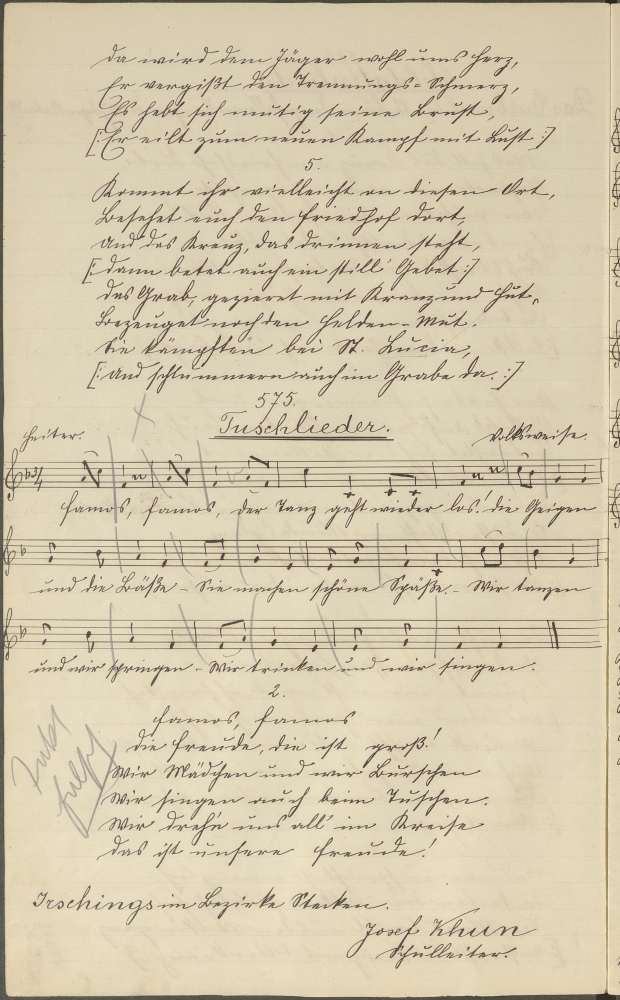 Da wird dem Jäger wohl ums Herz,
Er vergißt den Trennungs-Schmerz,
Es hebt sich mutig seine Brust,
[: Er eilt zum neuen Kampf mit Lust :]
5.
Kommt ihr vielleicht an diesen Ort,
Besehet euch den Friedhof dort,
Und das Kreuz, das drinnen steht,
[: dann betet auch ein still' Gebet :]
das Grab, gezieret mit Kranz und Hut,
Bezeuget noch den Helden-Mut.
Sie kämpften bei St. Lucia,
[: Und schlummern auch im Grabe da. :]
575.
Tuschlieder.
Heiter. Volksweise.
3/4
Famos, famos, der Tanz geht wieder los! die Geigen
und die Bäße - Sie machen schöne Späße. - Wir tanzen
und wir springen - Wir trinken und wir singen.
2.
Famos, famos
die Freude, die ist groß!
Wir Mädchen und wir Burschen
Wir singen auch beim Tuschen.
Wir dreh'n uns all' im Kreise
das ist unsere Freude!
Irschings im Bezirke Stecken.
Josef Khun
Schulleiter.